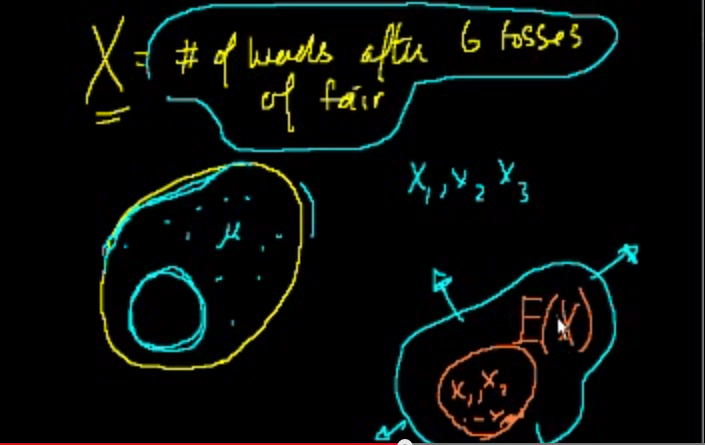 X = # of heads after 6 tosses
of fair
X₁, X₂ X₃
μ
E(X)
X₁, X₂